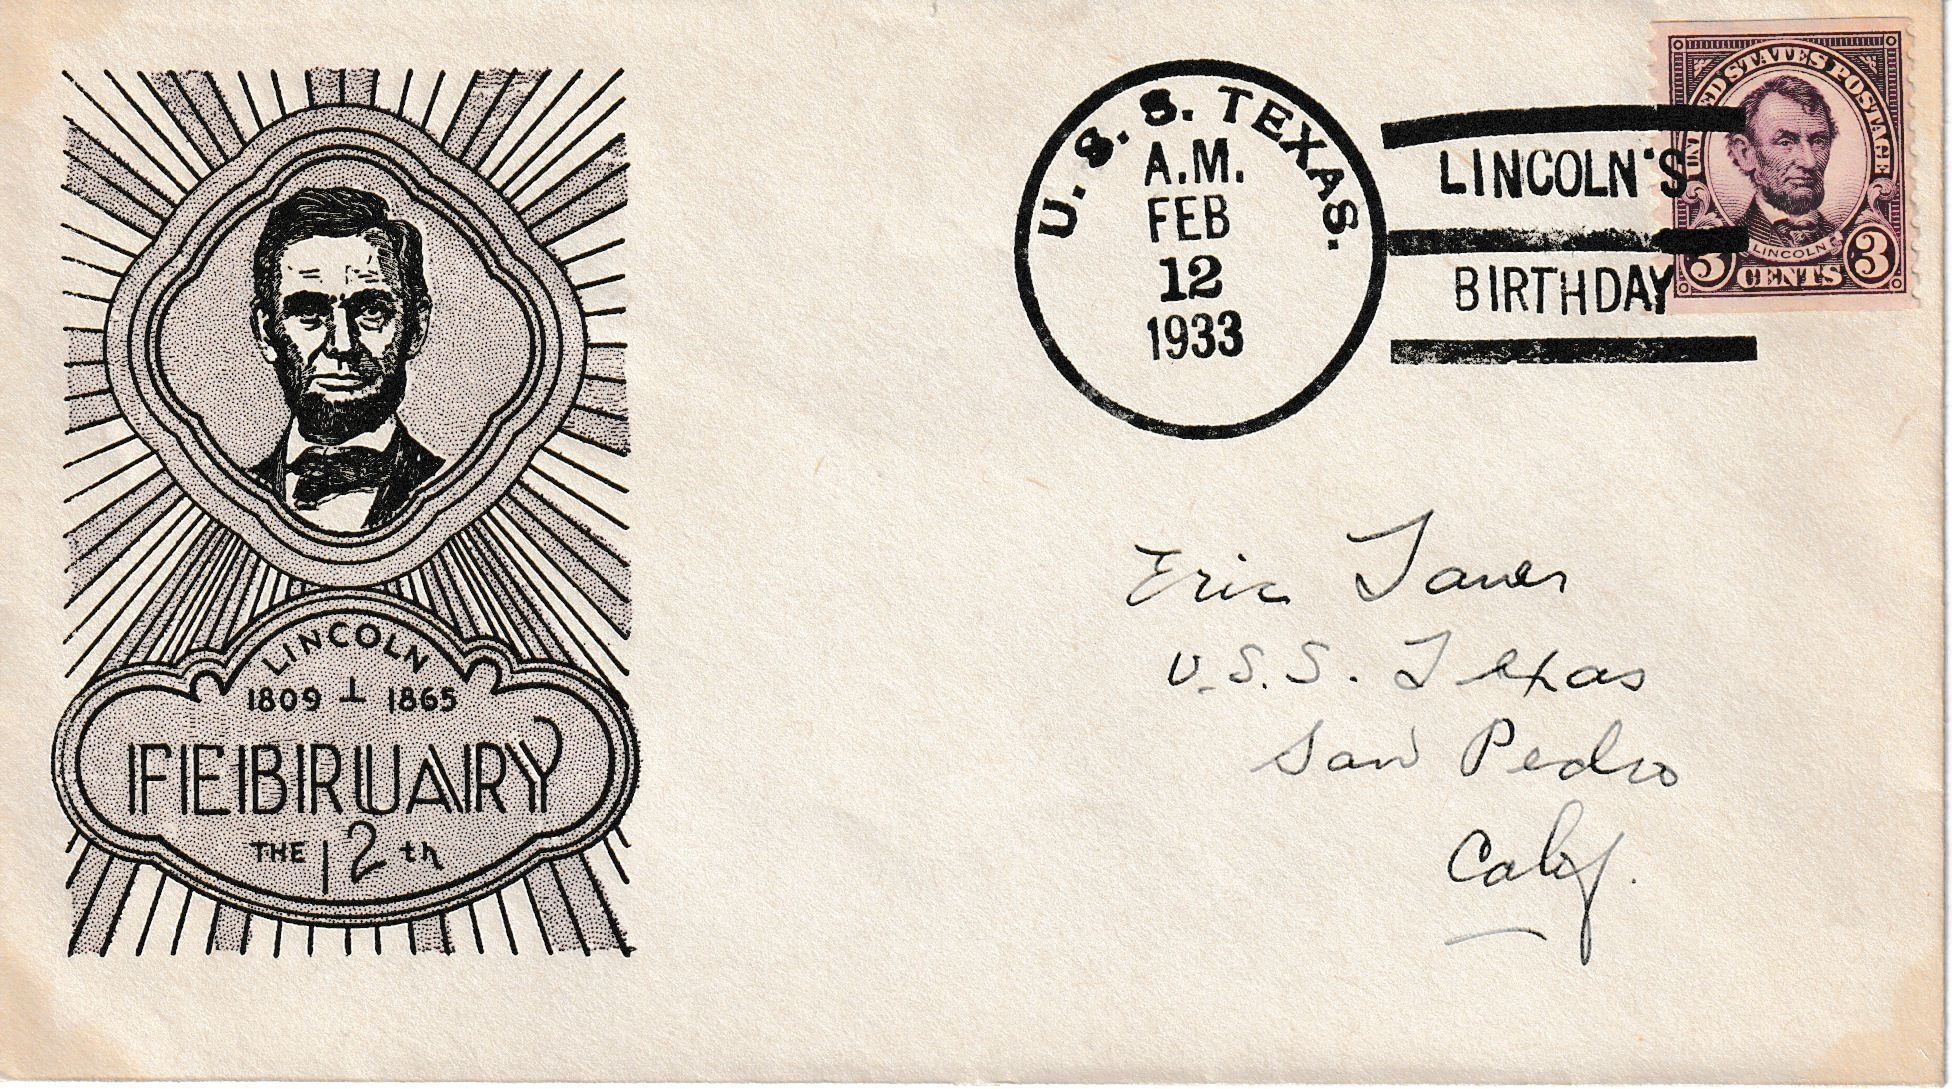 LINCOLN
1809 ⊥ 1865
FEBRUARY
THE 12th
U.S.S. TEXAS.
A.M.
FEB
12
1933
LINCOLN'S
BIRTHDAY
UNITED STATES POSTAGE
LINCOLN
3 CENTS 3
Eric
U.S.S. Texas
San Pedro
Calif.